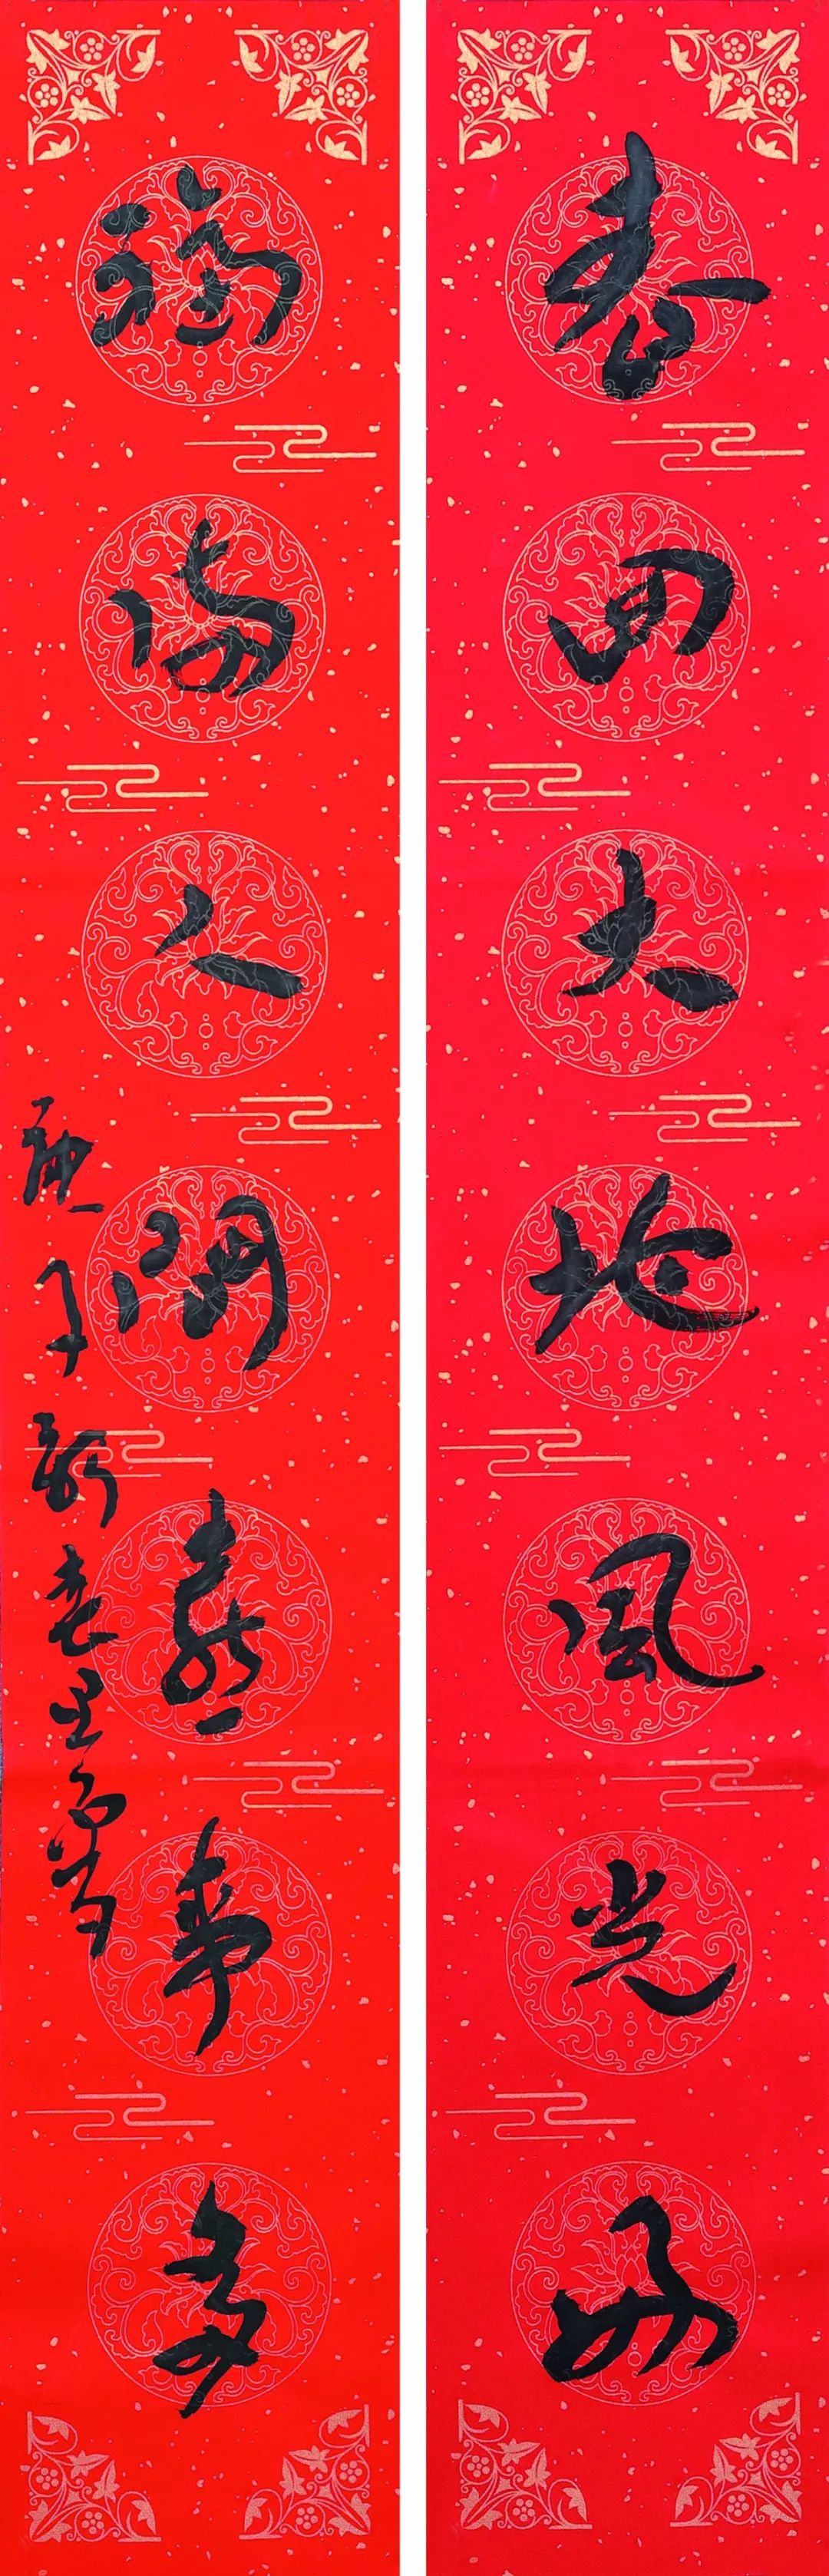 春回大地風光好
福滿人間喜事多
庚子新春